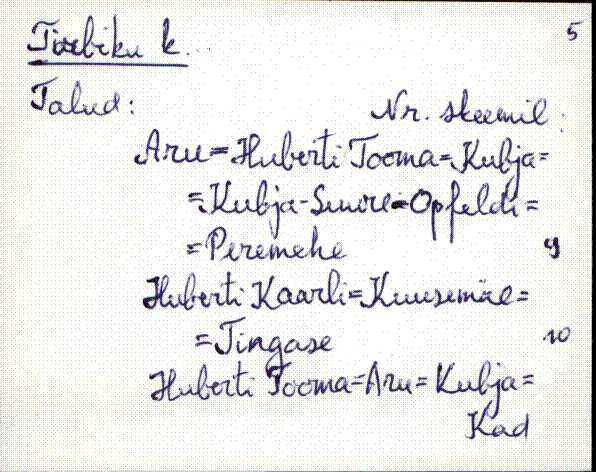 Tirbiku k. 5
Talud:
Nr. skeemil:
Aru=Huberti Tooma=Kubja=
=Kubja-Suure=Opfeldi=
=Peremehe 9
Huberti Kaarli=Kuusemäe=
=Tingase 10
Huberti Tooma=Aru=Kubja=
Kad